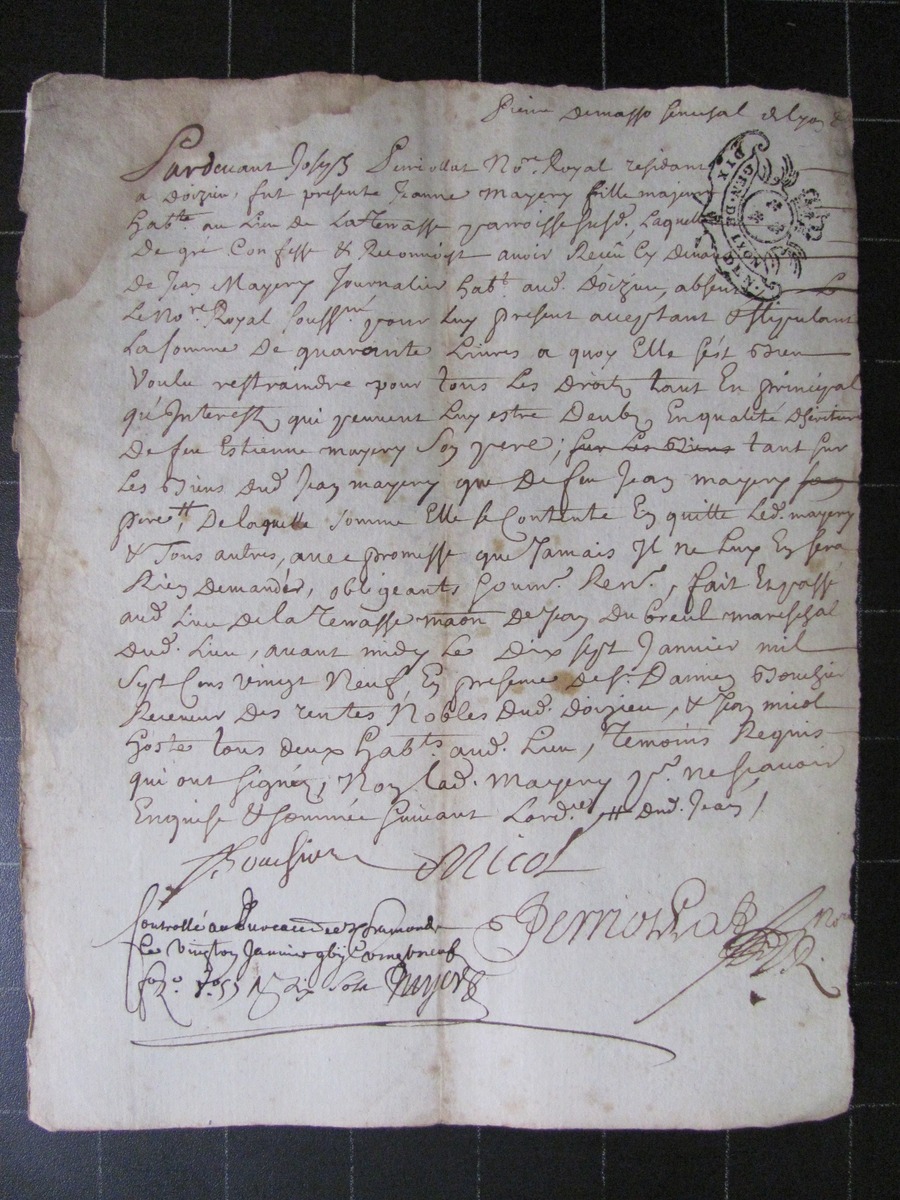 Pierre Demasso Seneschal de lyon &
Pardevant Joseph Perriollat No.re Royal residant
a Doizieu, fut presente Jeanne Mayery fille mayery
hab.te au Lieu de LaTerrasse parroisse susd. Laquelle
De gré Confesse & Reconnoist avoir Receu En
De Jean Mayery Journalier hab.t aud. Doizieu, absent Le
Le No.re Royal Souss.né pour Luy present acceptant & stipulant
La somme De quarante Livres a quoy Elle s'est Bien
Voulu restraindre pour tous Les Droits tant En principal
qu'Interests qui peuvent Luy estre Deubs En qualité D'heritiere
De feu Estienne mayery Son pere, sur Les Biens tant sur
Les Biens dud. Jean mayery que De feu Jean mayery son
pere, De laquelle somme Elle se Contente En quitte Led. mayery
& Tous autres, avec promesse que Jamais Il ne Luy En sera
Rien Demandér, obligeants Soum.s Ren.s, fait Et passé
aud. Lieu De la Terrasse maon De Jean Dubreul mareschal
dud. Lieu, avant midy Le Dix sept Janvier mil
Sept Cens vingt Neuf, En presence De S.r Damien Bouchier
Receveur Des rentes Nobles Dud. Doizieu, & Jean micol
hoste tous deux hab.ts aud. Lieu, Temoins Requis
qui ont signéz, Non lad. Mayery p.r ne sçavoir
Enquise & sommée suivant Lord.ce dud. Jean
Bouchier Micol
Controllé au Bureau de St Chamond Perriollat No.re R.
Le vingt Janvier vingt neuf
dix sols